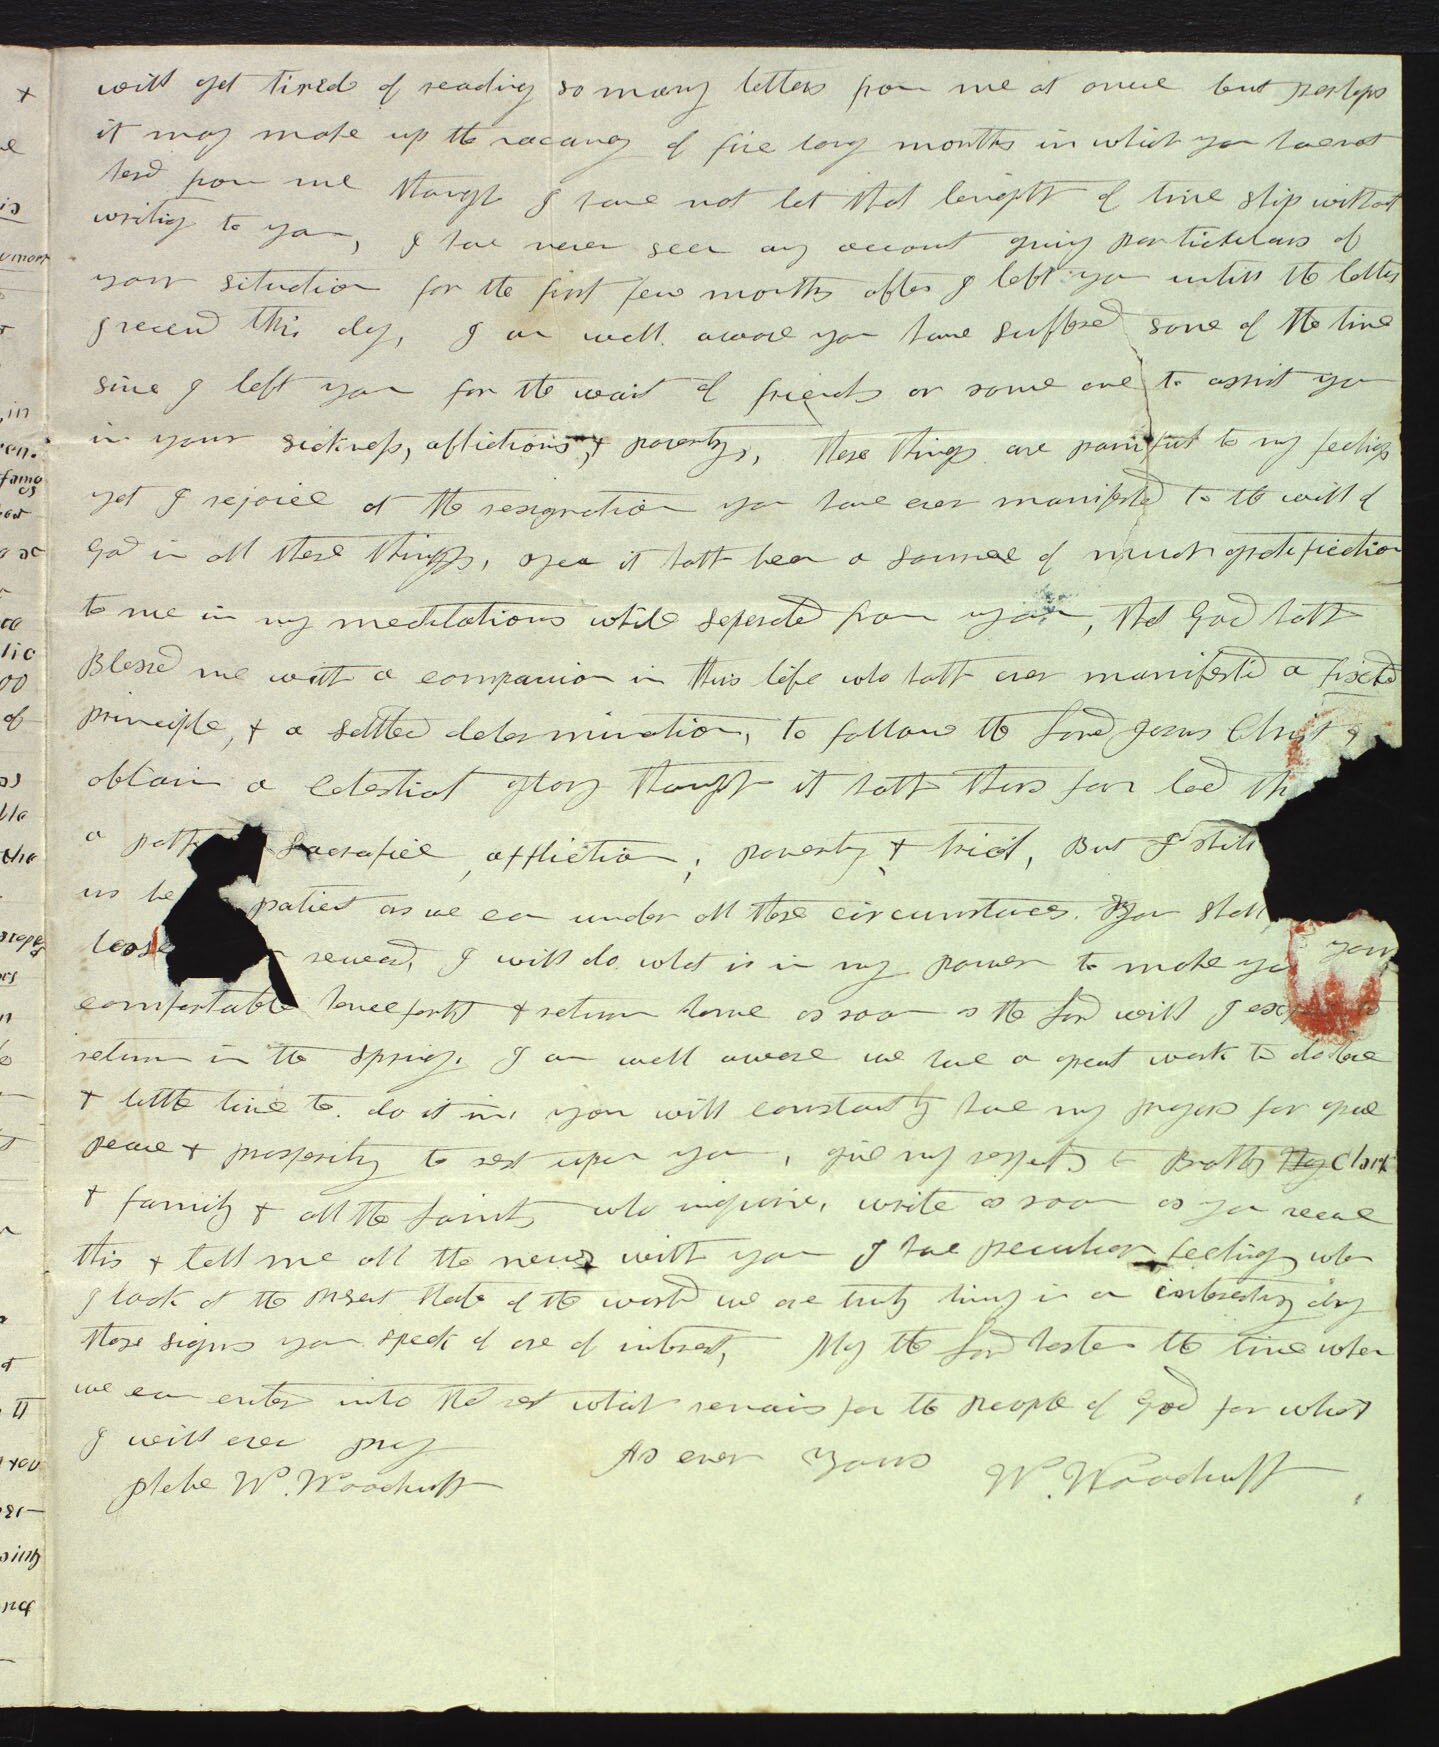 will get tired of reading so many letters from me at once but perhaps
it may make up the vacancy of five long months in which you have not
herd from me though I have not let that length of time slip without
writing to you, I have never seen any account giving particulars of
your situation for the first few months after I left you untill the letter
I receved this day, I am well aware you have suffered some of the time
since I left you for the want of friends or some one to assist you
in your sickness, afflictions, & poverty, these things are painful to my feelings
yet I rejoice at the resignation you have ever manifested to the will of
God in all these things, yea it hath been a source of much gratification
to me in my meditations while seperated from you, that God hath
Blessed me with a companion in this life who hath ever manifested a fixed
principle, & a settled determination, to follow the Lord Jesus Christ &
obtain a Celestial glory though it hath thus far led th
a path sacrafice, affliction, poverty & trial, But I still
us be patient as we can under all these circumstances. You shall
loose reward, I will do what is in my power to make you
your
comfortable henceforth & return home as soon as the Lord will I expect to
return in the spring. I am well aware we have a great work to do here
& little time to do it in, you will constantly have my prayers for grace
peace & prosperity to rest upon you, give my respects to Brother Clark
& family & all the Saints who inquire, write as soon as you receive
this & tell me all the news with you I have peculiar feelings when
I look at the present state of the world we are truly living in an interesting day
those signs you speak of are of interest, May the Lord hasten the time when
we can enter into that rest which remains for the people of God for which
I will ever pray
As ever Yours
Phebe W. Woodruff
W. Woodruff